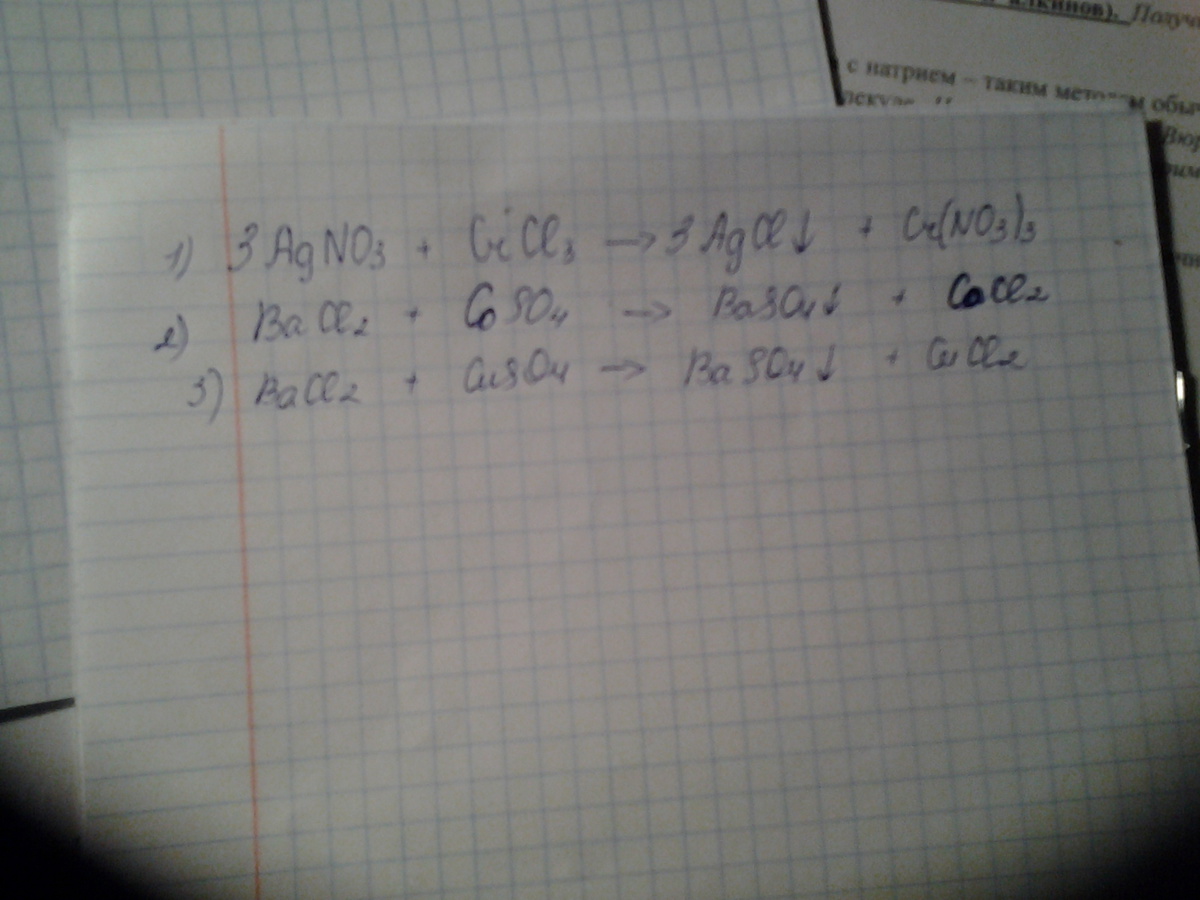 алкинов). Получ
с натрием – таким методом обы
1) 3AgNO3 + CrCl3 → 3AgCl↓ + Cr(NO3)3
2) BaCl2 + CoSO4 → BaSO4↓ + CoCl2
3) BaCl2 + CuSO4 → BaSO4↓ + CuCl2